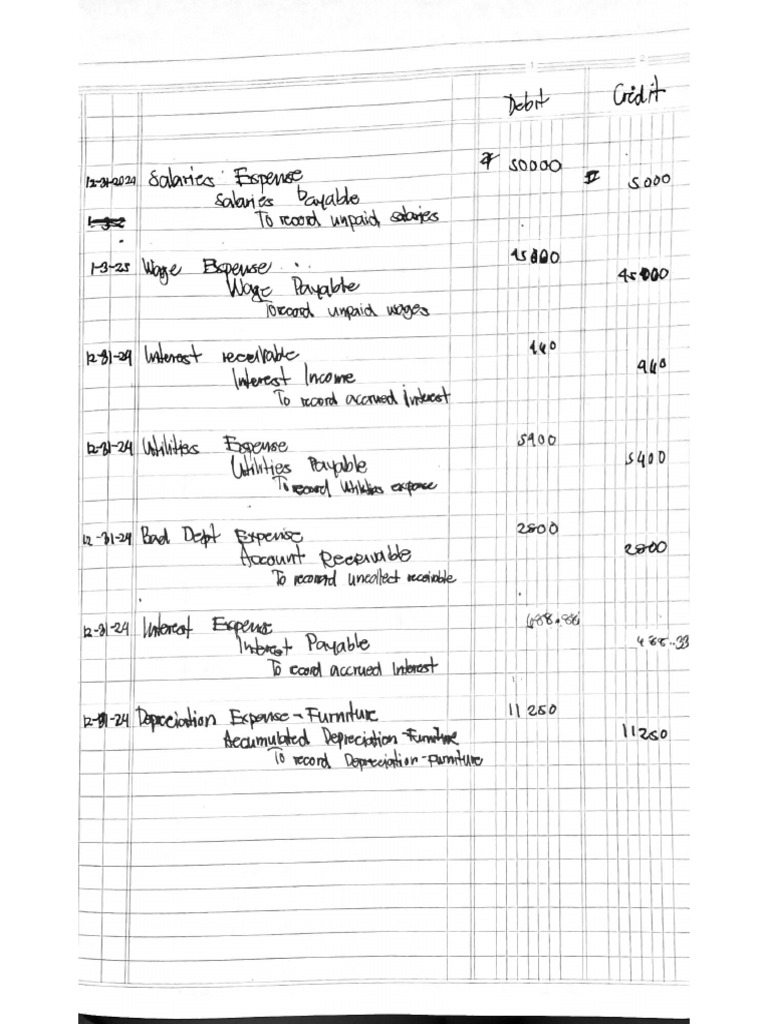 1 2
Debit Credit
12-31-2024 Salaries Expense ₱ 50000
Salaries Payable ₱ 5000
To record unpaid salaries
1-3-25 Wage Expense 45000
Wage Payable 45000
To record unpaid wages
12-31-24 Interest receivable 940
Interest Income 940
To record accrued interest
12-31-24 Utilities Expense 5400
Utilities Payable 5400
To record Utilities expense
12-31-24 Bad Dept Expense 2800
Account Receivable 2800
To record uncollect receivable
12-31-24 Interest Expense
Interest Payable 488.33
To record accrued Interest
12-31-24 Depreciation Expense - Furniture 11250
Accumulated Depreciation - Furniture 11250
To record Depreciation - Furniture